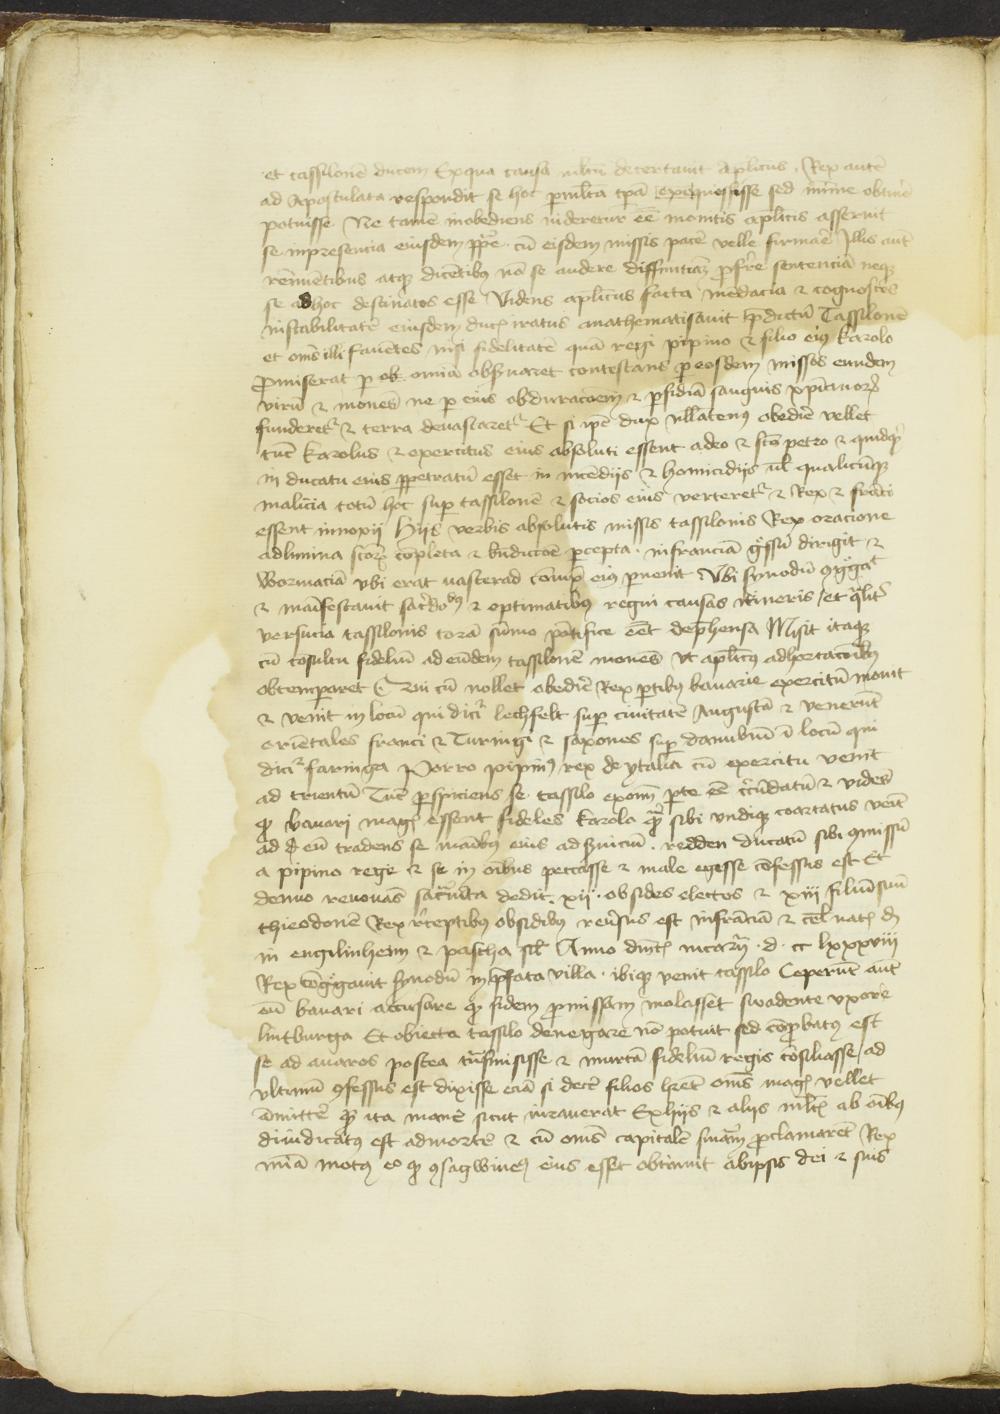 et tassilonē ducem Ex qua causa multū decertauit aplicus . Rex autē
ad Apostulata respondit se hoc p multa tpa exequessisse sed minime obtinē
potuisse Ne tamē inobediens uideretur eē monitis aplicis asseruit
se in presencia eiusdem ppe . cū eisdem missis pacē velle firmare Illis aut
rēnuētibus atq dicētibus nō se audere diffinitiuā pferre sentenciā neq
se ad hoc destinatos esse Videns aplicus facta mēdacia & cognoscēs
instabilitatē eiusdem ducis iratus anathematisauit pdictū Tassilonē
et oms illi fauētes nisi fidelitatē quā regi pipino & filio eius karolo
pmiserat p omia obseruaret contestans p eosdem missos eundem
virū & monēs ne p eius obduracoēm & pfidiā sanguis xpianorū
funderet & terra deuastaret Et si ipe dux vllatenus obedire vellet
tūc karolus & exercitus eius absoluti essent a deo & sco petro & quidq
in ducatu eius ppetratū esset in incēdijs & homicidijs ul qualicūq
malicia totū hoc sup tassilonē & socios eius verteret & Rex & franci
essent innoxij Hijs verbis absolutis missis tassilonis Rex oracione
ad limina scorū copleta & bndictoē pcepta . in franciā gssū dirigit &
wormaciā vbi erat uasterad coniux eius puenit Vbi synodū ggat
& manifestauit sacerdotibus & optimatibus regni causas itineris et qlit
versucia tassilonis corā sūmo pōtifice eet dephensa Misit itaq
cū cosultu fideliū ad eūdem tassilonē monēs vt aplicis adhortacoibus
obtemparet Qui cū nollet obedire Rex ptibus bauarie exercitū mouit
& venit in locū qui dicit lechfelt sup ciuitatē Augustā & venerūt
oriētales franci & Turingi & saxones sup danubiū ī locū qui
dicit faringa Porro pipinus rex de ytalia cū exercitu venit
ad trientū Tūc pspiciens se tassilo ex omi pte eē circūdatū & vidēs
q bauari magis essent fideles karolo q sibi vndiq coartatus venit
ad eū tradens se manibus eius ad seruiciū . redden ducatū sibi gmissū
a pipino rege & se in oibus peccasse & male egisse cōfessus est Et
denuo renouās sacramēta dedit . xij . obsides electos & xiij filiū suū
theodonē Rex receptibus obsidibus reuersus est in franciā & cel nats d
in engilinheim & pascha sil Anno dnice incarn . d . cc lxxxviij
Rex cōggauit synodū in pfata villa . ibiq venit tassilo Ceperūt aut
eū bauari accusare q fidem pmissam violasset swadente vxore
lintburga Et obiecta tassilo denegare nō potuit sed cōpbatus est
se ad auaros postea trāsmisisse & murtā fideliū regis cōsiliasse / ad
vltimū gfessus est dixisse eciā si decē filios haberet oms magis vellet
amitte q ita manē sicut iurauerat Ex hijs & alijs multis ab oibus
diiudicatus est ad mortē & cū oms capitalē sniam pclamarēt Rex
mia motus eo q gsagwineus eius esset obtinuit ab ipsis dei & suis